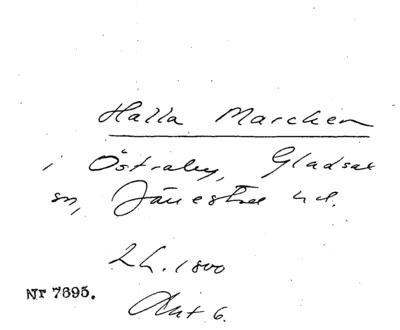 Halla Marcken
i Östraby, Gladsax
sn, Järrestad hd.
2 h. 1800
Akt 6.
Nr 7695.